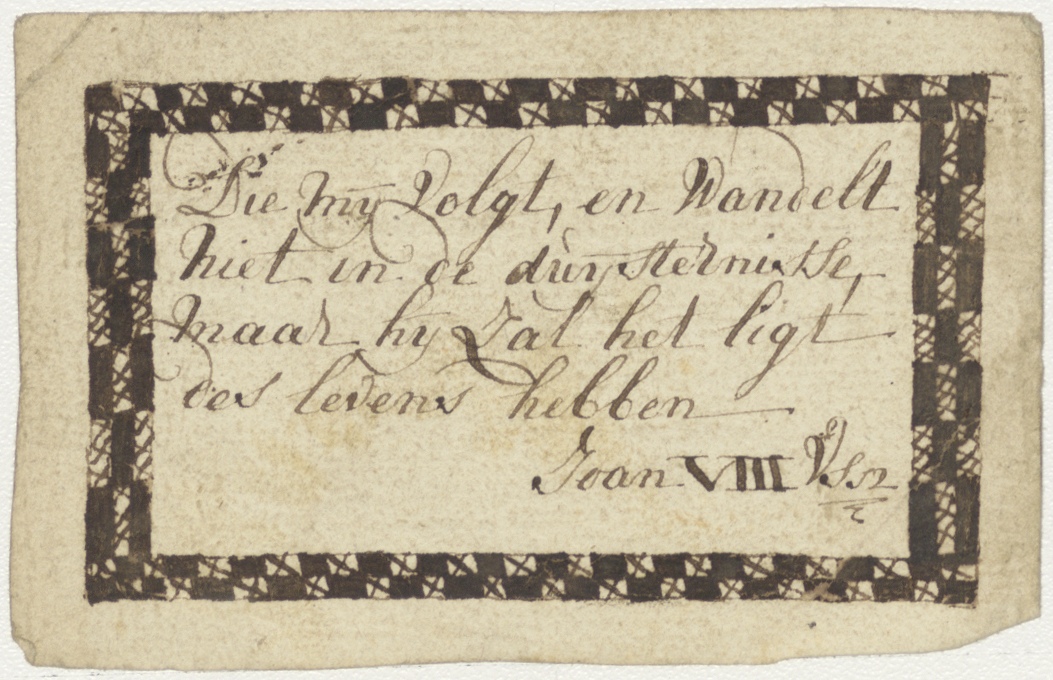 Die mÿ Volgt, en Wandelt
niet in de dùÿsternisse,
maar hÿ Zal het ligt
des levens hebben
Joan VIII Vs 12